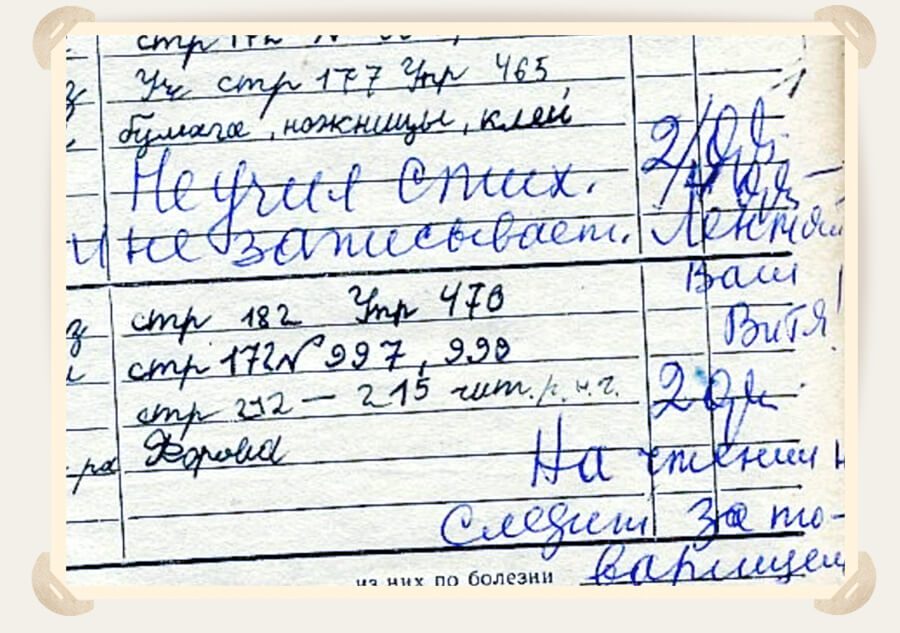 стр 172 №
Уч стр 177 Упр 465
бумага, ножницы, клей
Не учил стих. 2/
и не записывает. Лентяй
Ваш
стр 182 Упр 470 Витя!
стр 172 № 997, 990
стр 212 – 215 чит. р. н. г. 2
На чтении н
следит за то-
варищем
из них по болезни